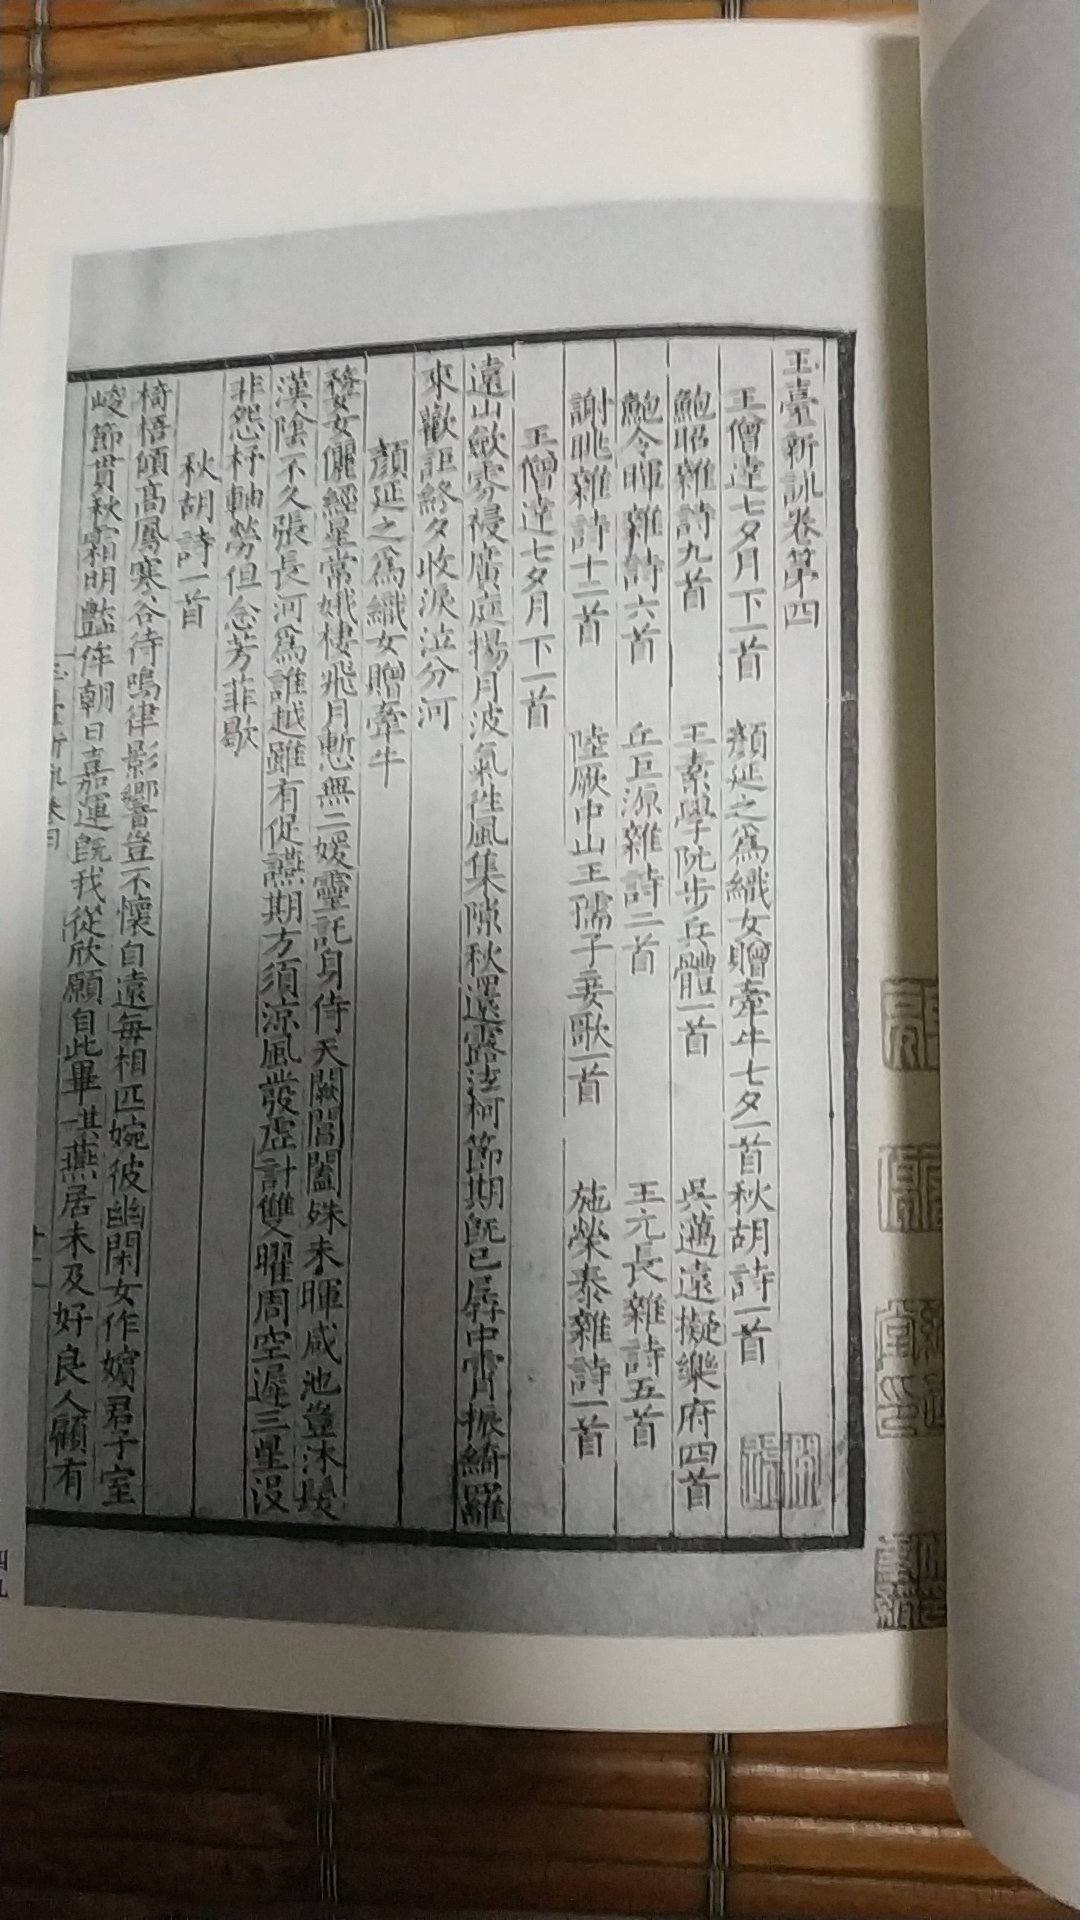 玉臺新詠卷第四
王僧達七夕月下一首 顏延之爲織女贈牽牛七夕一首秋胡詩一首
鮑昭雜詩九首 王素學阮步兵體一首 吳邁遠擬樂府四首
鮑令暉雜詩六首 丘巨源雜詩二首 王元長雜詩五首
謝朓雜詩十二首 陸厥中山王孺子妾歌一首 施榮泰雜詩一首
王僧達七夕月下一首
遠山斂雰祲廣庭揚月波氣徃風集隙秋還露泫柯節期旣已孱中霄振綺羅
來歡詎終夕收淚泣分河
顏延之爲織女贈牽牛
婺女儷經星常娥棲飛月慙無二媛靈託身侍天闕閶闔殊未暉咸池豈沐髮
漢陰不久張長河爲誰越雖有促讌期方須涼風發虛計雙曜周空遲三星沒
非怨杼軸勞但念芳菲歇
秋胡詩一首
椅梧傾高鳳寒谷待鳴律影響豈不懷自遠每相匹婉彼幽閑女作嬪君子室
峻節貫秋霜明豔侔朝日嘉運旣我從欣願自此畢 其一 燕居未及好良人顧有